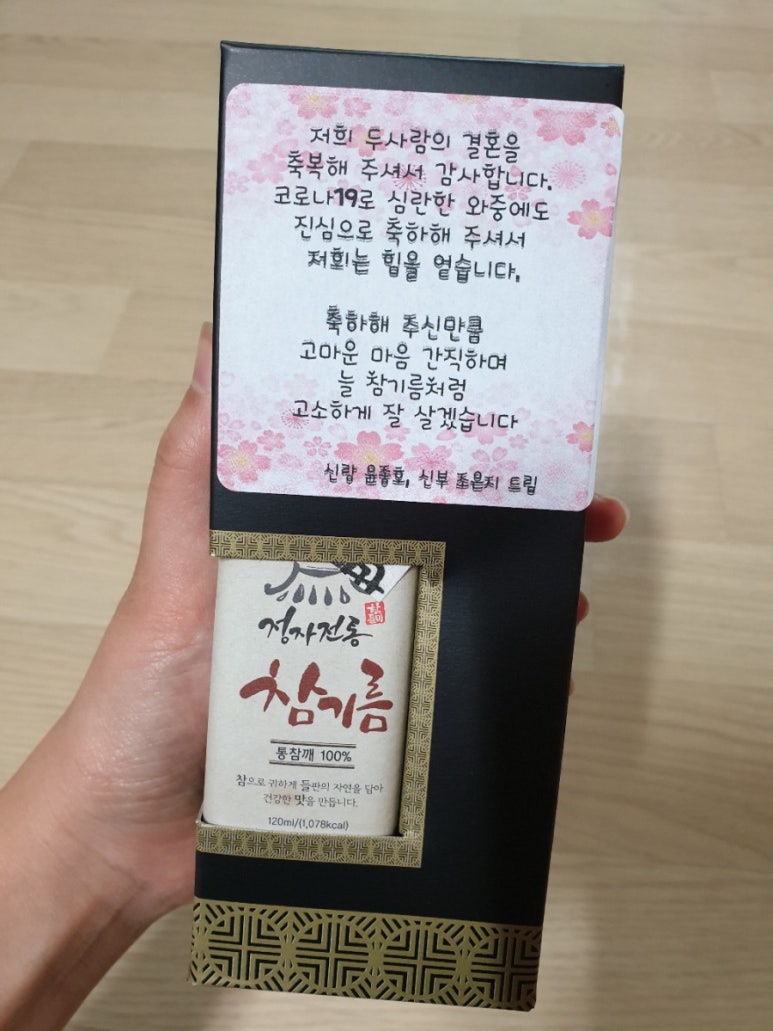 저희 두사람의 결혼을
축복해 주셔서 감사합니다.
코로나19로 심란한 와중에도
진심으로 축하해 주셔서
저희는 힘을 얻습니다.
축하해 주신만큼
고마운 마음 간직하며
늘 참기름처럼
고소하게 잘 살겠습니다
신랑 윤종호, 신부 조은지 드림
정자전통
참기름
통참깨 100%
참으로 귀하게 들판의 자연을 담아
건강한 맛을 만듭니다.
120ml/(1,078kcal)